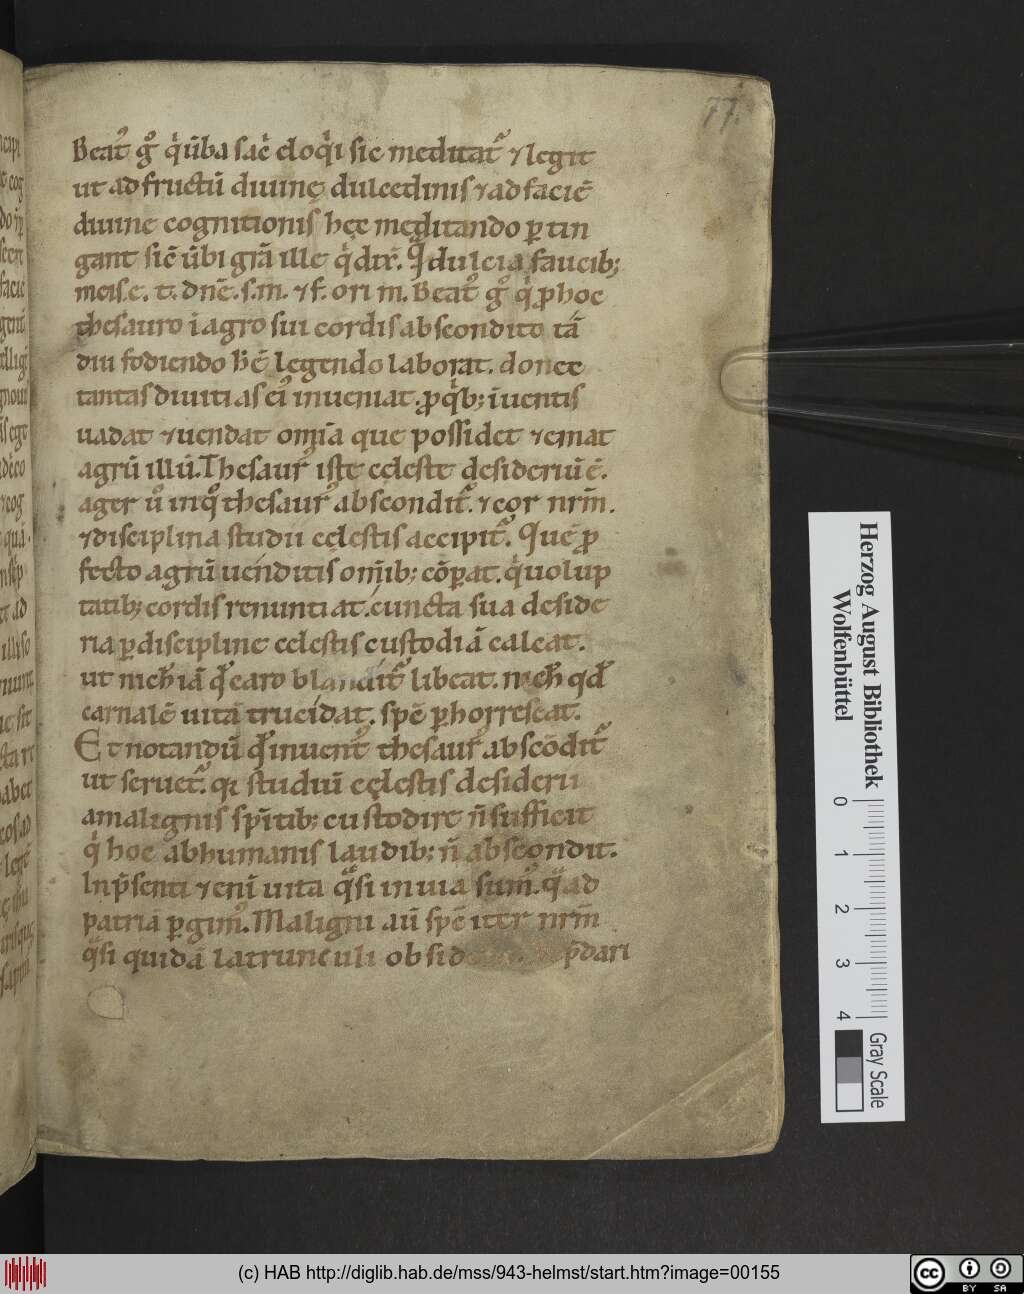 77.
Beat᷒ g͛ qͥ ūba sac̄ eloqͥi sic meditat᷒ ⁊ legit
ut ad fructū diuinę dulcedinis ⁊ ad faciē
diuine cognitionis hęc meditando ꝑtin
gant sic̄ ūbi grā ille qͥ dix̄. Qͣ dulcia faucib;
meis.e. t. dn̄e. s. m. ⁊ f. ori m. Beat᷒ g͛ qͥ ꝓ hoc
thesauro ī agro sui cordis abscondito tā
diu fodiendo hē legendo laborat. donec
tantas diuitias ei᷒ inueniat. ꝓ qͥb; īuentis
uadat ⁊ uendat om̄ia que possidet ⁊ emat
agrū illū. Thesaur᷒ iste cęleste desideriū ē.
ager ū inq͛ thesaur᷒ abscondit᷒. ⁊ cor nrm̄.
⁊ disciplina studii cęlestis accipit᷒. Quē ꝓ
fecto agrū uenditis om̄ib; cōꝑat. qͥ uolup
tatib; cordis renuntiat. cuncta sua deside
ria ꝑ disciplinę cęlestis custodiā calcat.
ut nich̄ iā qđ caro blandit᷒ libeat. nich̄ qđ
carnalē uitā trucidat. spē ꝑhorrescat.
Et notandū qđ inuent᷒ thesaur᷒ abscōdit᷒
ut seruet᷒. qꝛ studiū cęlestis desiderii
a malignis spītib; custodire n̄ sufficit
qͥ hoc ab humanis laudib; n̄ abscondit.
In p̄senti ⁊enī uita qͣsi in uia sum᷒. qͣ ad
patriā ꝑgim᷒. Maligni aū spē iter nrm̄
qͣsi quidā latrunculi obsid p̄dari
Herzog August Bibliothek
Wolfenbüttel
0 1 2 3 4
Gray Scale
(c) HAB http://diglib.hab.de/mss/943-helmst/start.htm?image=00155
cc BY SA